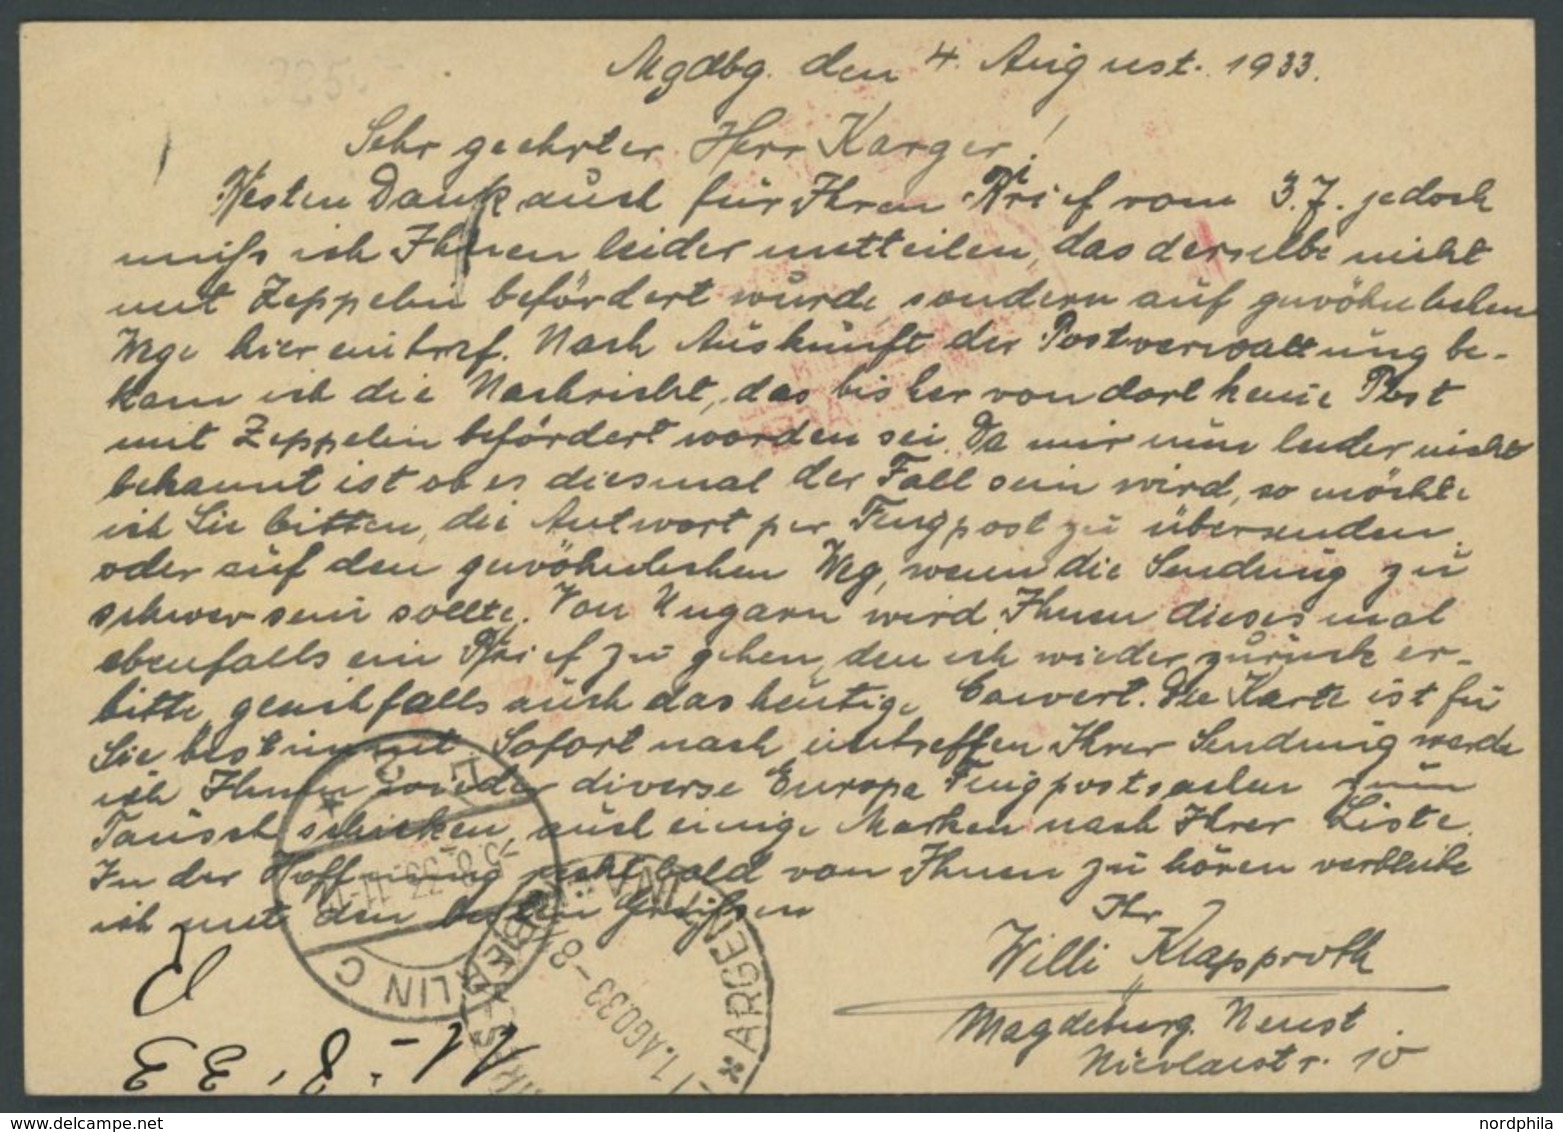 Mgdbg. den 4. August. 1933.
Sehr geehrter Herr Karger!
Besten Dank auch für Ihren Brief vom 3.7. jedoch
muß ich Ihnen leider mitteilen, das derselbe nicht
mit Zeppelin befördert wurde sondern auf gewöhnlichen
Wege hier eintraf. Nach Auskunft der Postverwaltung be-
kam ich die Nachricht, das bisher von dort keine Post
mit Zeppelin befördert worden sei. Da mir nun leider nicht
bekannt ist ob es diesmal der Fall sein wird, so möchte
ich Sie bitten, die Antwort per Flugpost zu übersenden.
oder auf den gewöhnlichen Weg, wenn die Sendung zu
schwer sein sollte. Von Ungarn wird Ihnen dieses mal
ebenfalls ein Brief zu gehen, den ich wieder zurück er-
bitte, gleichfalls auch das heutige Couvert. Die Karte ist für
Sie bestimmt. Sofort nach eintreffen Ihrer Sendung werde
ich Ihnen wieder diverse Europa Flugpostsachen zum
Tausch schicken, auch einige Marken nach Ihrer Liste.
In der Hoffnung recht bald von Ihnen zu hören verbleibe
ich mit den besten Grüßen
Ihr
Willi Klapproth
Magdeburg. Neust.
Nicolaistr. 10
R
11-8-33
BERLIN C
ARGENTINA
11.AGO.33-8
nordphila